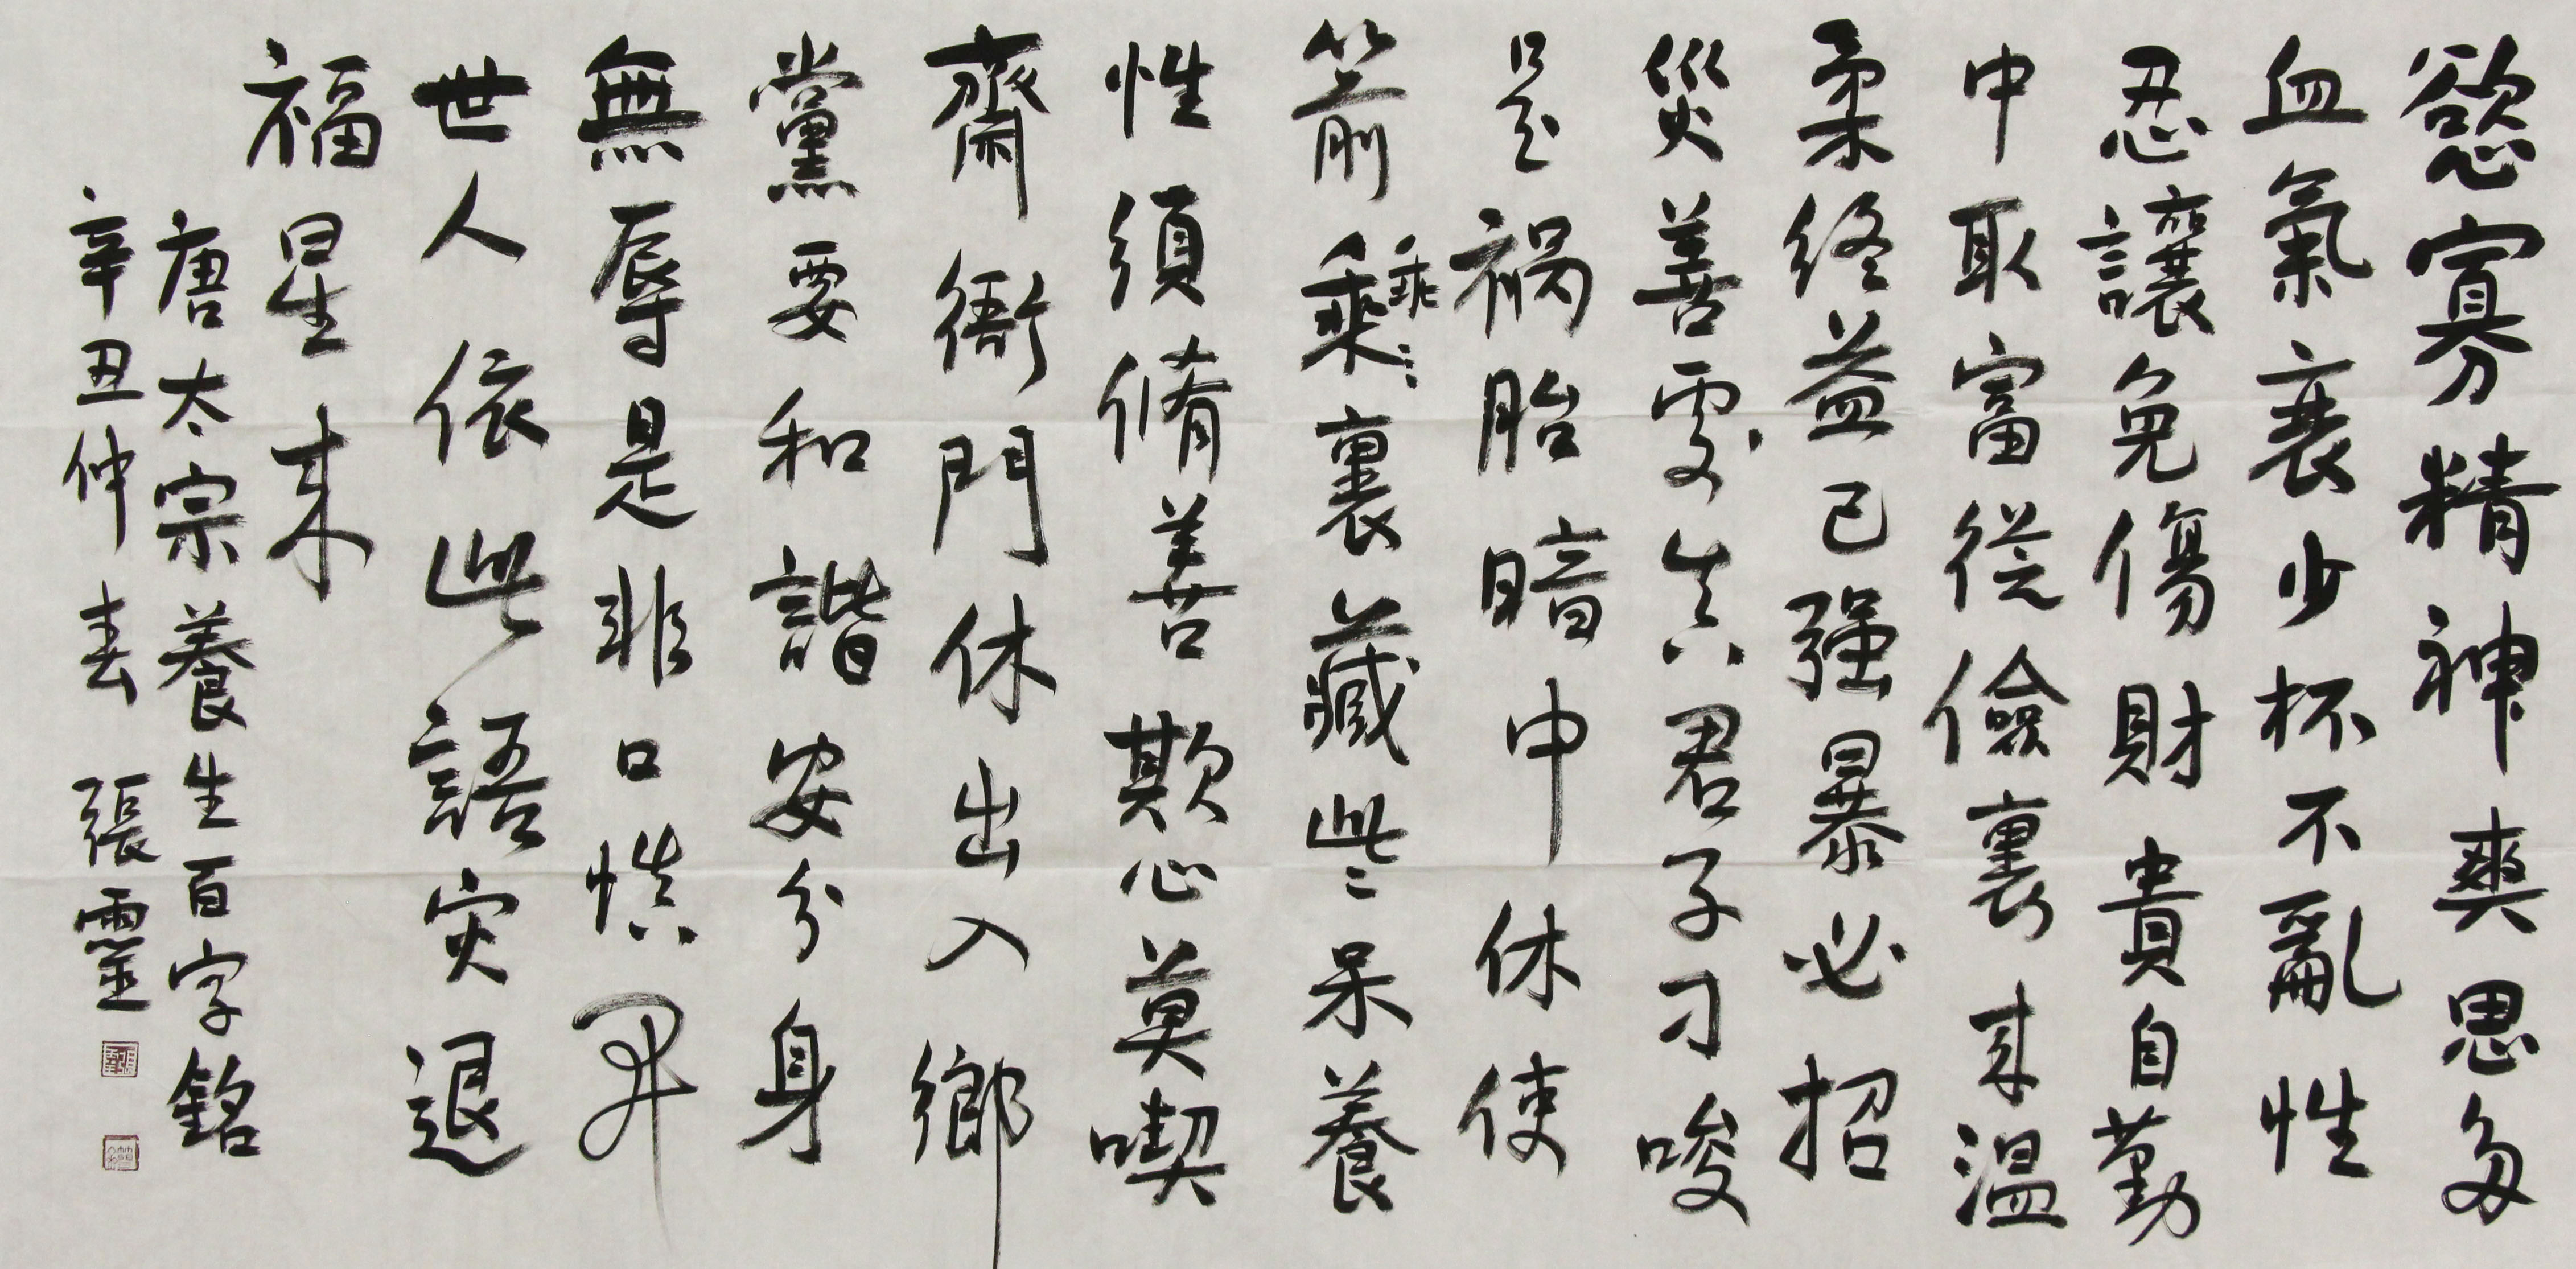 慾寡精神爽思多
血氣衰少杯不亂性
忍讓免傷財貴自勤
中取富從儉裏来温
柔終益己强暴必招
災善處真君子刁唆
是禍胎暗中休使
箭乖乖裏藏些々呆養
性須脩善欺心莫喫
齋衙門休出入鄉
黨要和諧安分身
無辱是非口慎開
世人依此語灾退
福星来
唐太宗養生百字銘
辛丑仲春 張靈